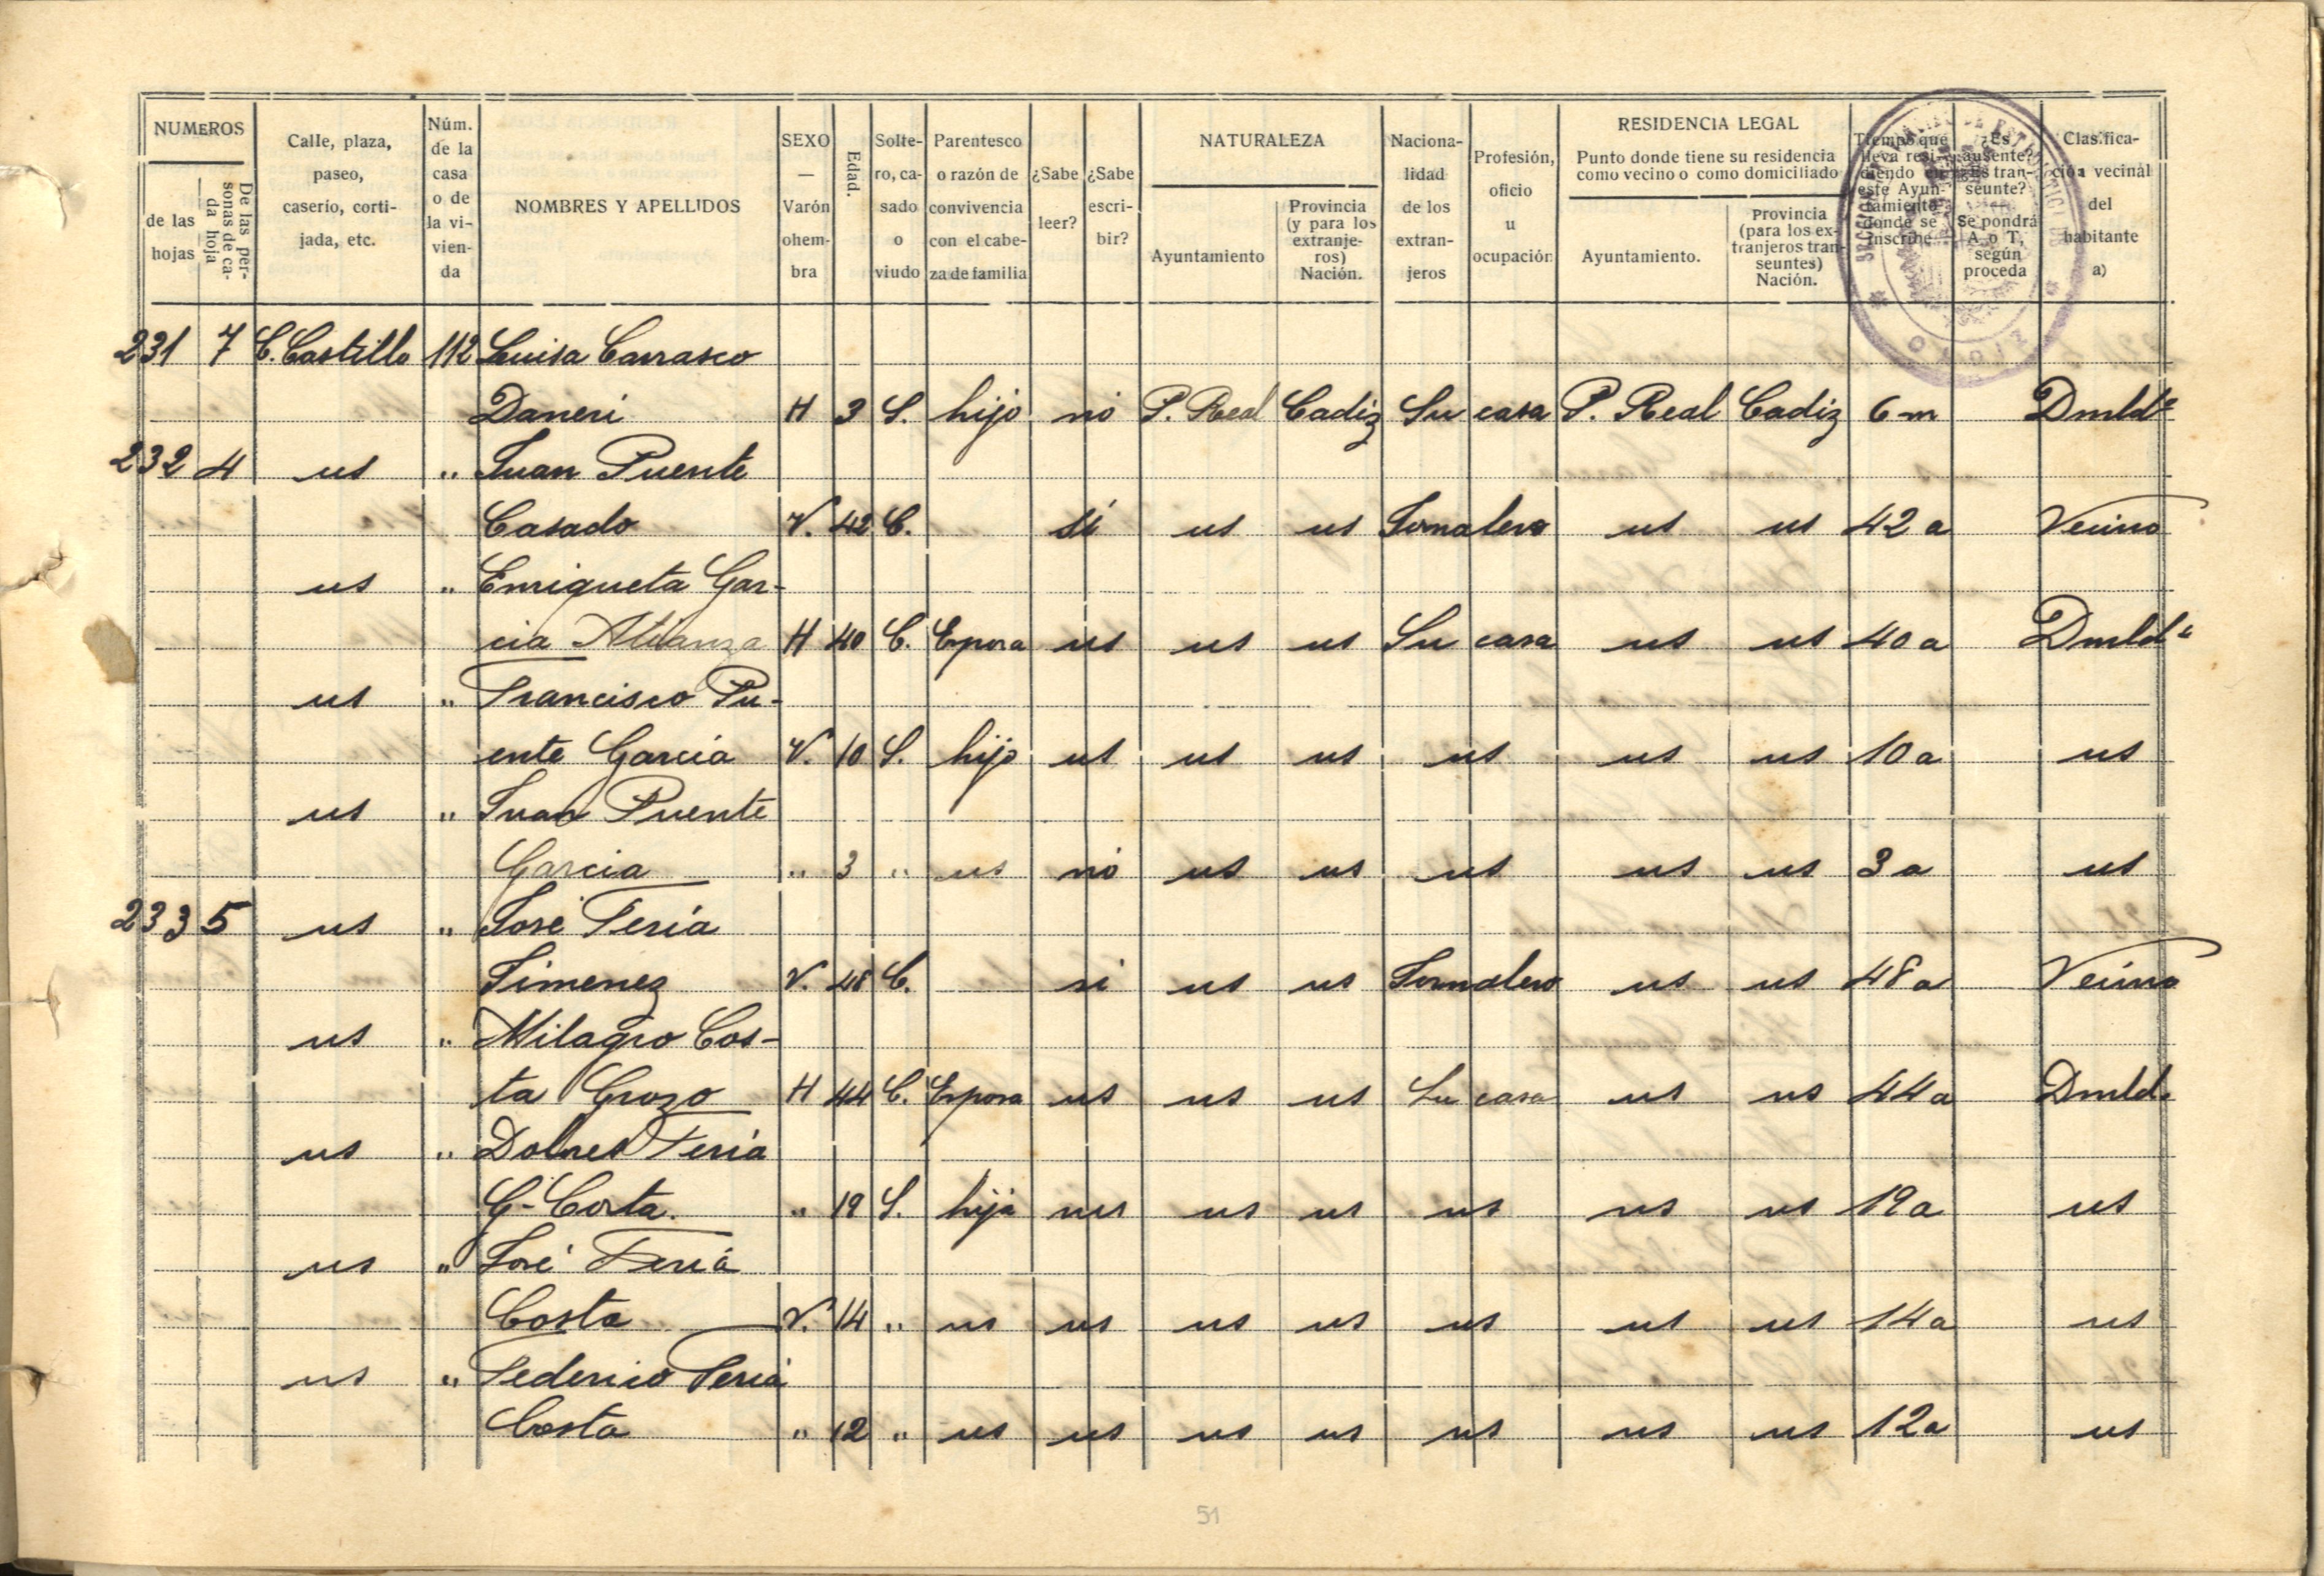 NUMEROS
de las hojas
De las personas de cada hoja
Calle, plaza, paseo, caserío, cortijada, etc.
Núm. de la casa o de la vivienda
NOMBRES Y APELLIDOS
SEXO — Varón o hembra
Edad.
Soltero, casado o viudo
Parentesco o razón de convivencia con el cabeza de familia
¿Sabe leer?
¿Sabe escribir?
NATURALEZA
Ayuntamiento
Provincia (y para los extranjeros) Nación.
Nacionalidad de los extranjeros
Profesión, oficio u ocupación
RESIDENCIA LEGAL
Punto donde tiene su residencia como vecino o como domiciliado
Ayuntamiento.
Provincia (para los extranjeros transeuntes) Nación.
Tiempo que lleva residiendo en este Ayuntamiento donde se inscribe
¿Es ausente? ¿Es transeunte? — Se pondrá A. o T. según proceda
Clasificación vecinal del habitante a)
231 7 C. Castillo 112 Luisa Carrasco
Daneri H 3 S. hijo no P. Real Cadiz Su casa P. Real Cadiz 6 m Dmldª
232 4 us " Juan Puente
Casado V. 42 C. si us us Jornalero us us 42 a Vecino
us " Enriqueta Gar-
cia H 40 C. Esposa us us us Su casa us us 40 a Dmldª
us " Francisco Pu-
ente Garcia V. 10 S. hijo us us us us us us 10 a us
us " Juan Puente
Garcia " 3 " us no us us us us us 3 a us
233 5 us " José Feria
Jimenez V. 48 C. si us us Jornalero us us 48 a Vecino
us " Milagro Cos-
ta H 44 C. Esposa us us us Su casa us us 44 a Dmld.
us " Dolores Feria
G- Costa. " 19 S. hija us us us us us us 19 a us
us " José Feria
Costa V. 14 " us us us us us us us 14 a us
us " Federico Feria
Costa " 12 " us us us us us us us 12 a us
51